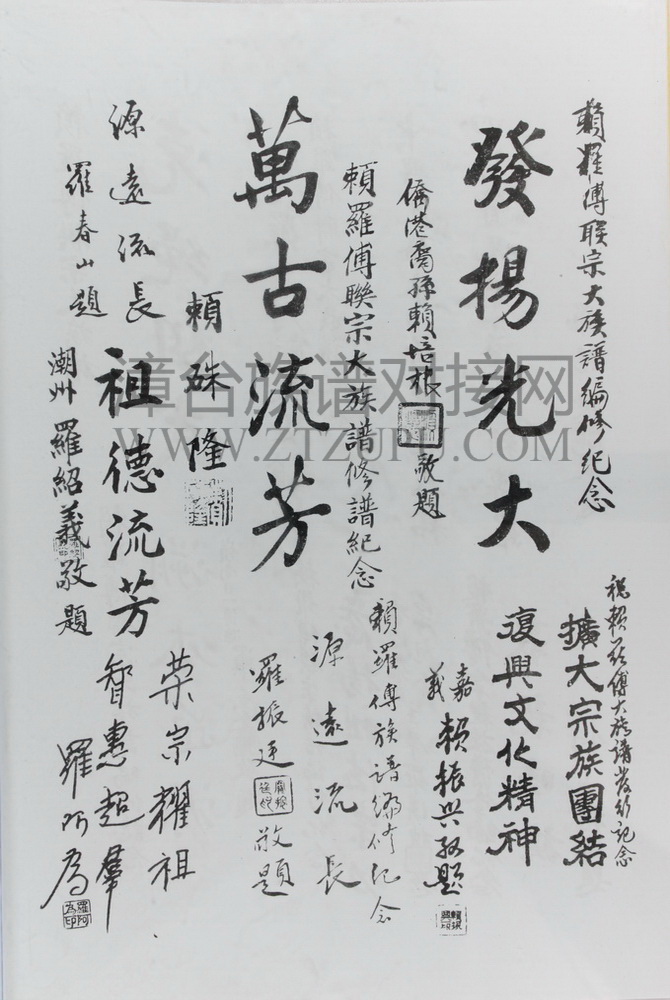 賴羅傅联宗大族譜編修纪念
發揚光大
僑港裔孫賴培根敬題
賴羅傅聯宗大族譜修譜紀念
萬古流芳
賴硃隆
源遠流長
羅春山題
祖德流芳
潮州羅紹義敬題
祝賴羅傅大族譜發行記念
擴大宗族團結
復興文化精神
嘉義賴振興敬題
賴羅傅族譜編修纪念
源遠流長
羅振廷敬題
荣宗耀祖
智惠超群
羅阿為
羅阿為印
漳台族谱对接网
WWW.ZTZUPU.COM